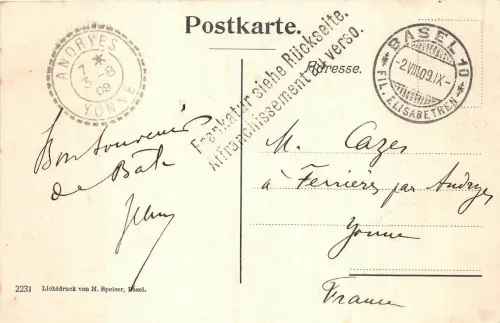 Postkarte.
Adresse.
Frankatur siehe Rückseite.
Affranchissement au verso.
ANDRYES
7 * 
3 -8
09
YONNE
BASEL 10
-2.VIII.09.IX-
* FIL. ELISABETHEN *
Bon Souvenir
de Bâle
M. Cazes
à Ferrières par Andryes
Yonne
France
2231 Lichtdruck von H. Speiser, Basel.